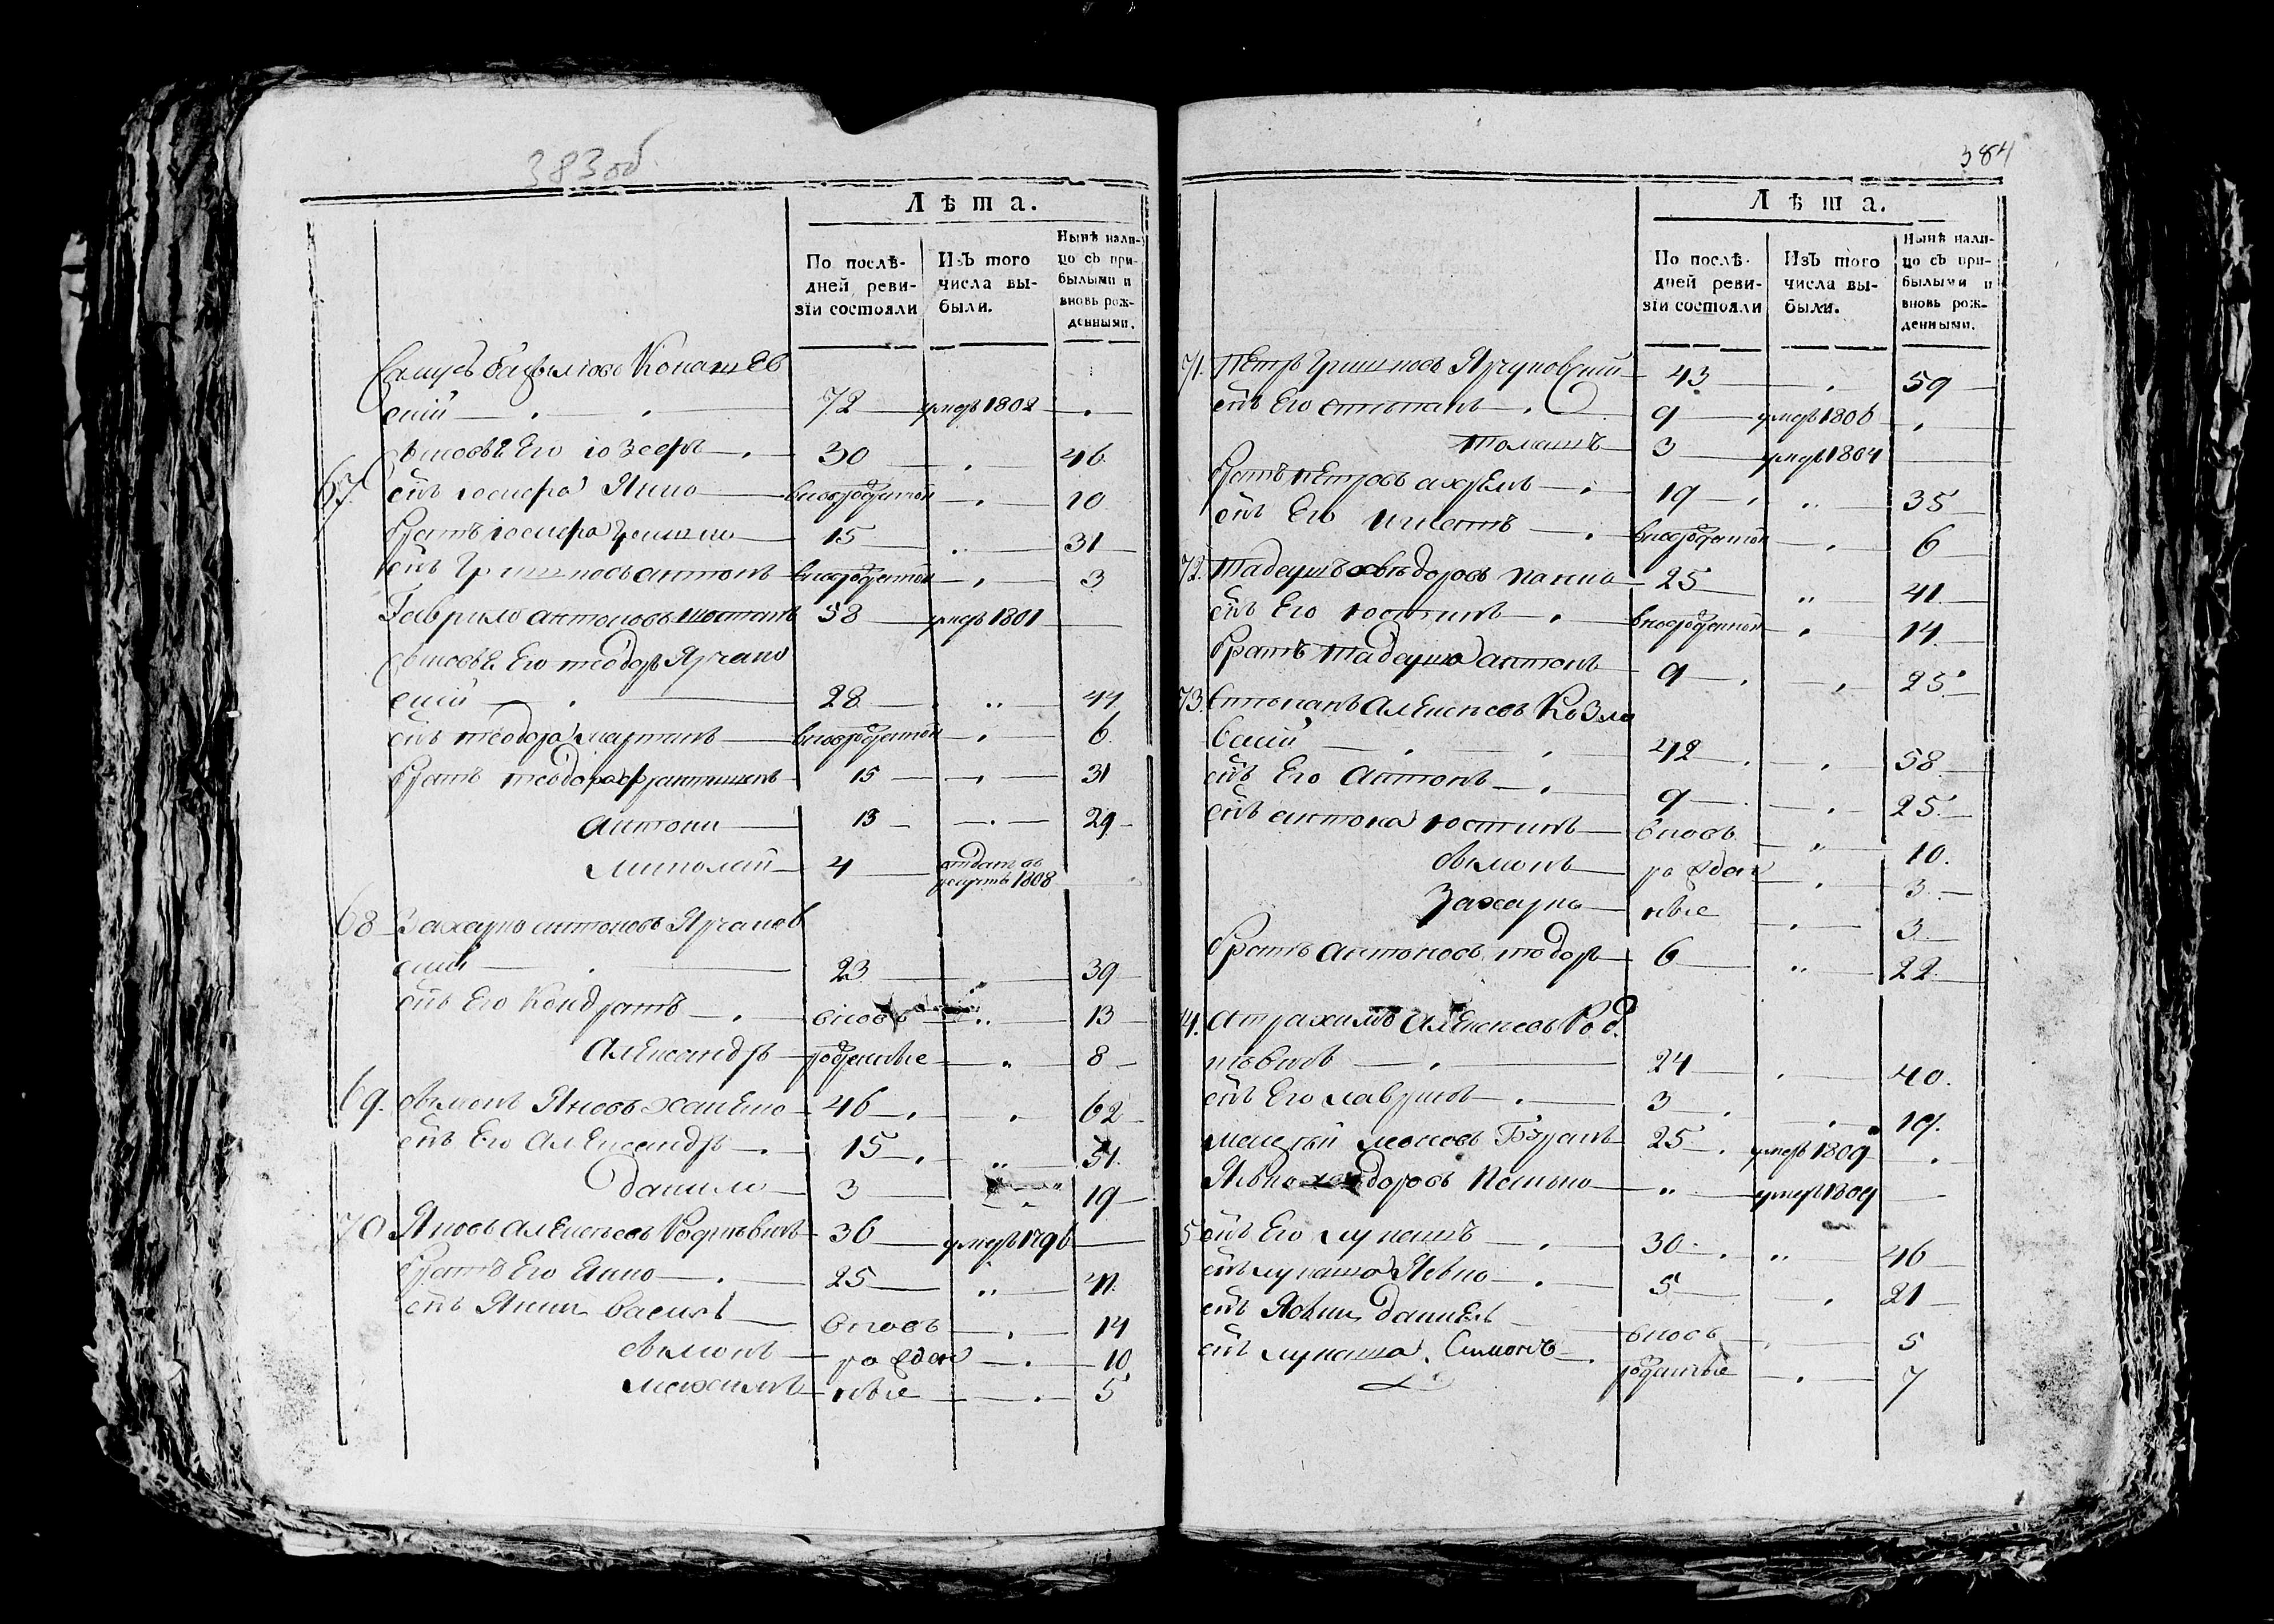 383об
Лѣта.
По послѣ-
дней реви-
зїи состояли
Изъ того
числа вы-
были.
Нынѣ нали-
цо съ при-
былыми и
вновь рож-
денными.
Конашев
скiй 72 умеръ 1802
сыновья Его Iозефъ 30 46
67. сынъ Iосифа Янко вновьрожденой 10
братъ Iосифа Гришко 15 31
сынъ Гришковъ антонъ вновьрожденой 3
Гаврило антоновъ шостакъ 58 умеръ 1801
Сыновья Его теодоръ Ярчако
скiй 28 44
сынъ теодора мартинъ вновьрожденой 6
братъ теодора францишекъ 15 31
антони 13 29
миколай 4 отданъ въ рекруты 1808
68 Захарко антоновъ Ярчаков
скiй 23 39
сынъ Его Кондратъ вновь 13
Александръ рожденные 8
69. Яковъ 46 62
сынъ Его Александръ 15 31
данило 3 19
70 Яковъ Алексѣевъ Родкѣвичь 36 умеръ 1796
братъ Его Янко 25 41
сынъ Янки василь вновь 14
рожден 10
максимъ ные 5
384
Лѣта.
По послѣ-
дней реви-
зїи состояли
Изъ того
числа вы-
были.
Нынѣ нали-
цо съ при-
былыми и
вновь рож-
денными.
71. Петръ Гришковъ 43 59
сынъ Его степанъ 9 умеръ 1806
томашъ 3 умеръ 1804
братъ петровъ 19 35
сынъ Его игнатъ вновьрожденой 6
72. тадеушъ 25 41
сынъ Его юстинъ вновьрожденой 14
братъ тадеуша антонъ 9 25
73. Степанъ Алексѣевъ Козло
вскiй 42 58
сынъ Его Антонъ 9 25
сынъ антона юстинъ вновь 10
рожден 3
Захарко ные 3
братъ антоновъ тодоръ 6 22
4. Алексѣевъ Род
кѣвичь 24 40
сынъ Его лавринъ 3 19
25 умеръ 1809
умеръ 1809
5 сынъ Его лукашъ 30 46
сынъ лукаша Яcько 5 21
сынъ данiелъ вновь 5
сынъ лукаша Симонъ рожденные 7